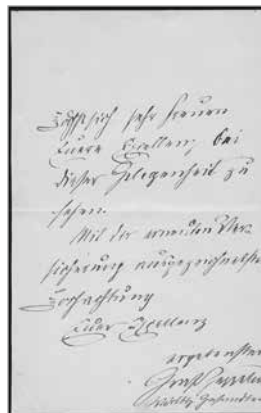 sich sehr freuen
Euere Excellenz bei
dieser Gelegenheit zu
sehen.
Mit der erneuten Ver-
sicherung ausgezeichnetster
Hochachtung
Euer Excellenz
ergebenster
Graf Zeppelin